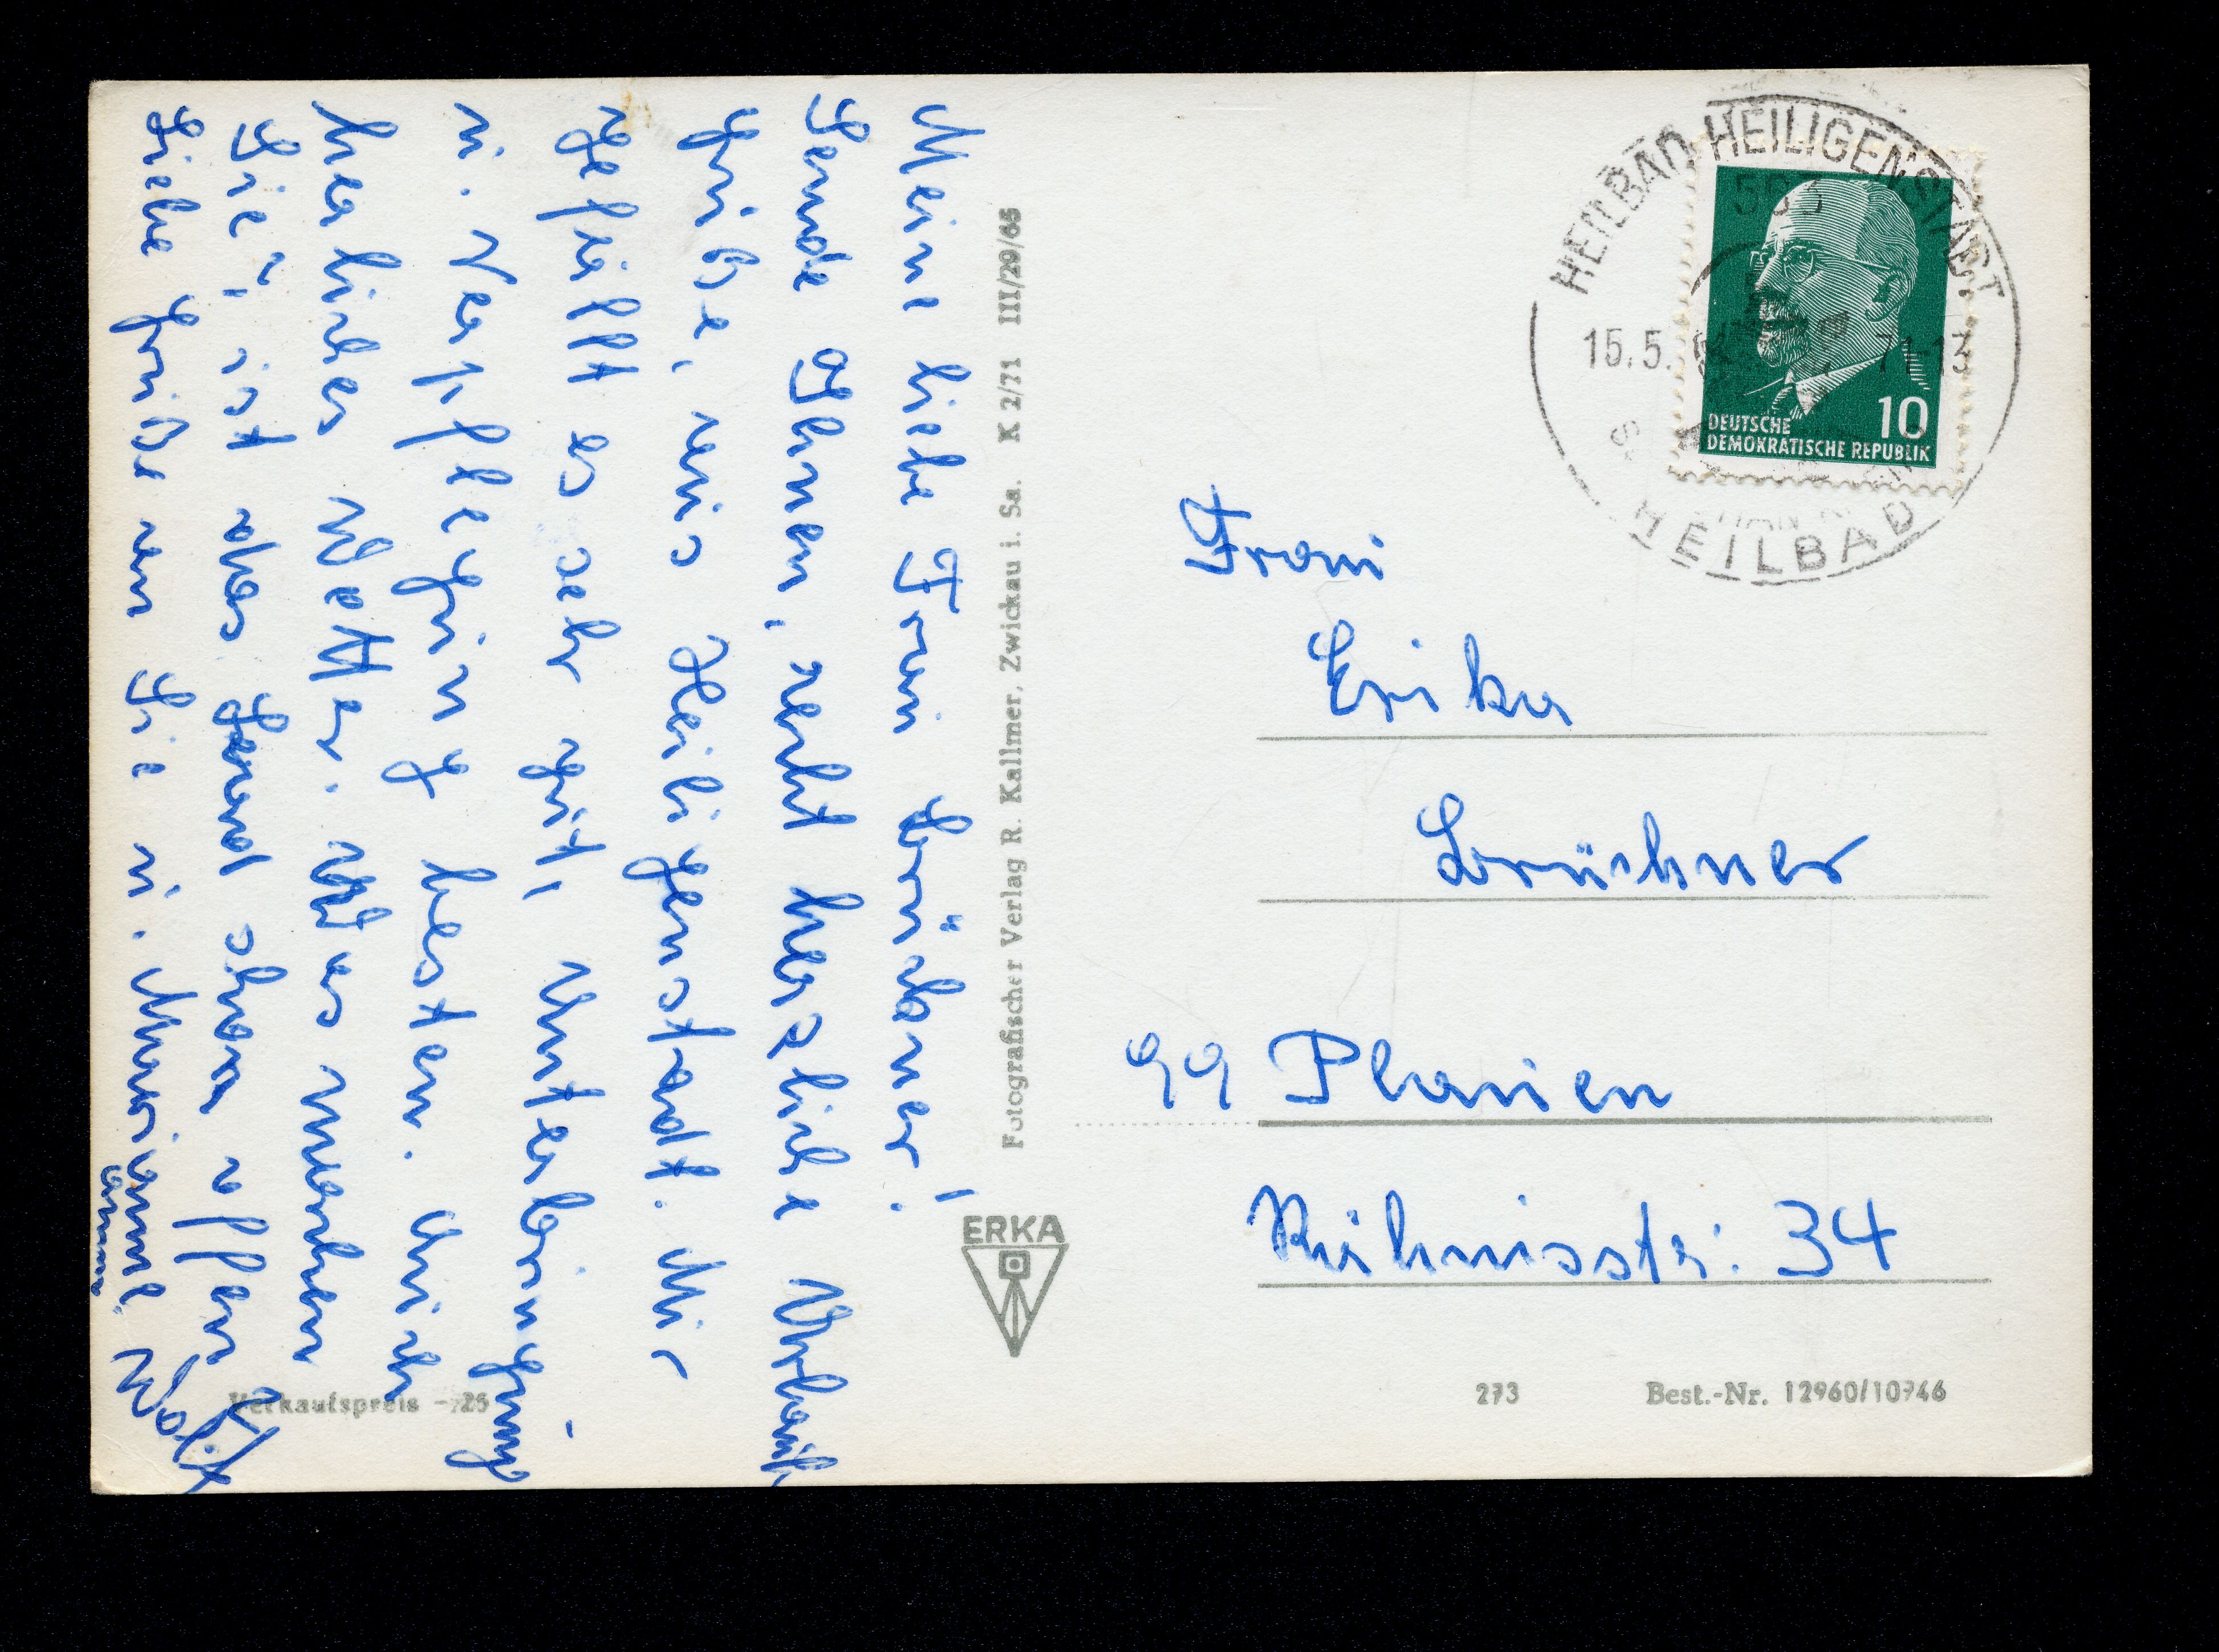 Meine liebe Frau Brückner!
Sende Ihnen, recht herzliche Urlaubs
grüße, aus Heiligenstadt. Mir
gefällt es sehr gut, Unterbringung
u. Verpflegung bestens. Auch
herrliches Wetter. Was machen
Sie?, ist das Land schon offen?
Liebe Grüße an Sie u. Marianne
Fotografischer Verlag R. Kallmer, Zwickau i. Sa. K 2/71 III/29/65
ERKA
Verkaufspreis -,25
HEILBAD HEILIGENSTADT
15.5. 71-13
HEILBAD
10
DEUTSCHE
DEMOKRATISCHE REPUBLIK
Frau
Erika
Brückner
99 Plauen
Rücknisstr. 34
273 Best.-Nr. 12960/10746